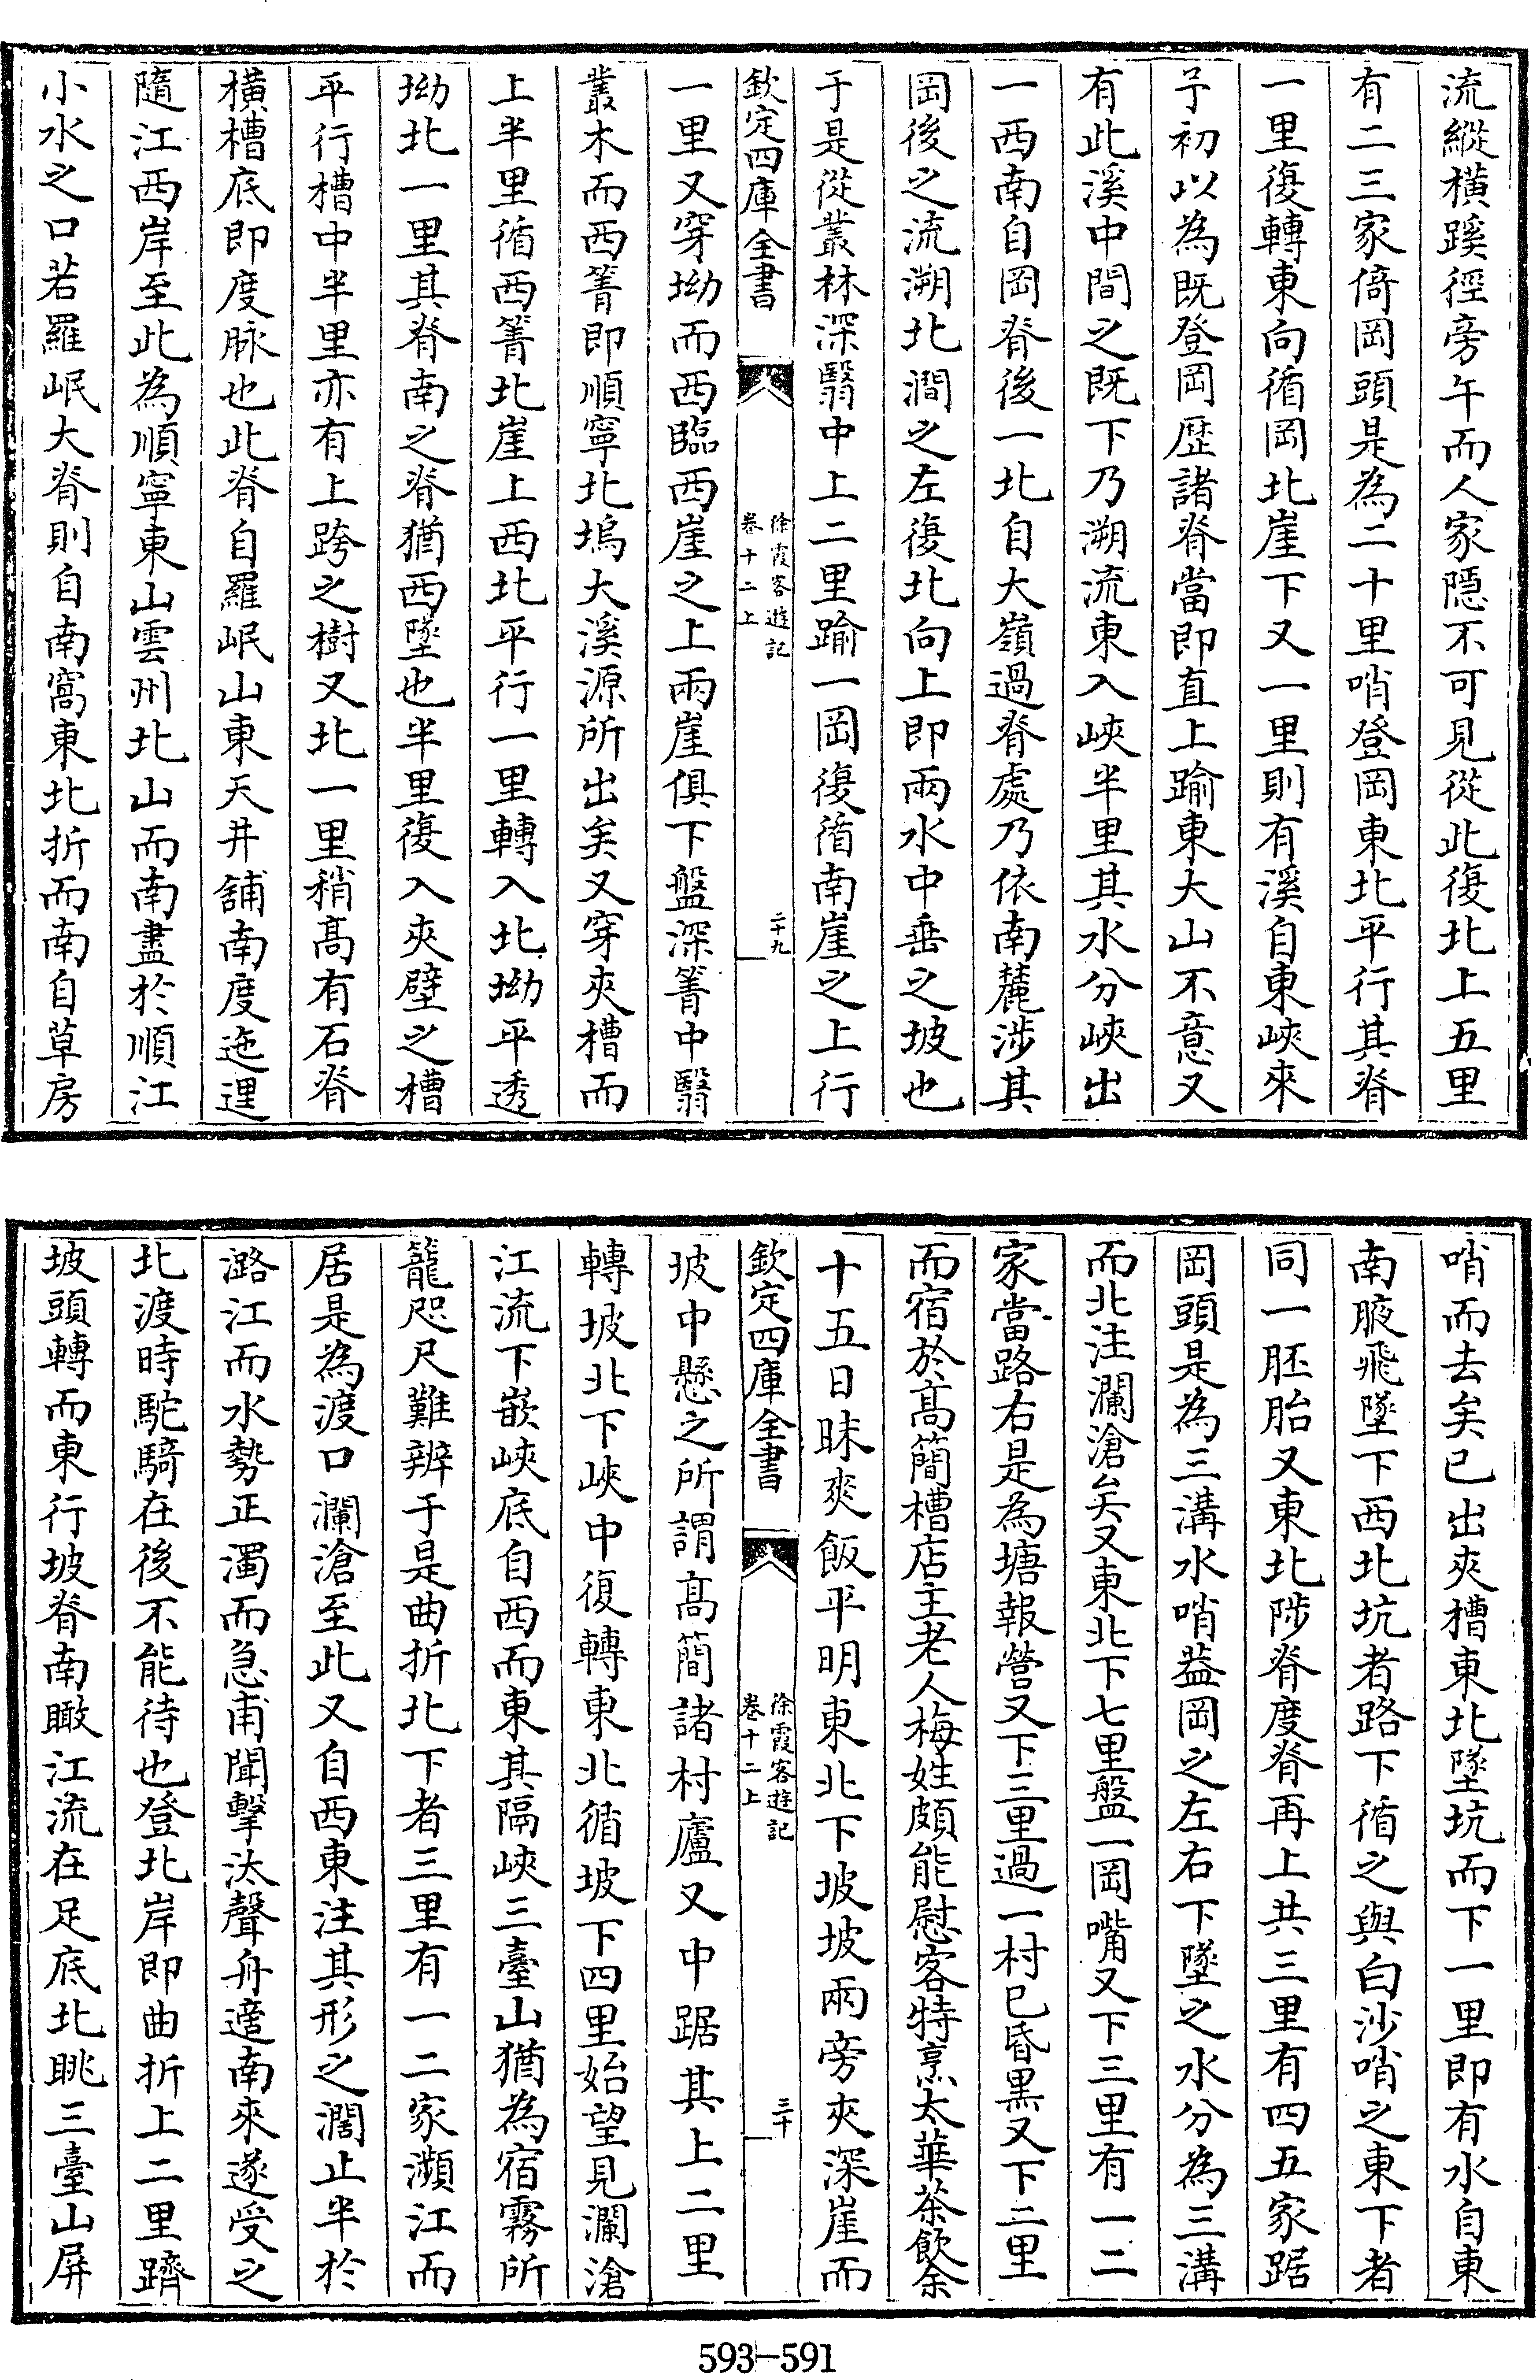 流縱橫蹊徑旁午而人家隱不可見從此復北上五里
有二三家倚岡頭是為二十里哨登岡東北平行其脊
一里復轉東向循岡北崖下又一里則有溪自東峽來
予初以為既登岡歴諸脊當即直上踰東大山不意又
有此溪中間之既下乃溯流東入峽半里其水分峽出
一西南自岡脊後一北自大嶺過脊處乃依南麓涉其
岡後之流溯北澗之左復北向上即兩水中垂之坡也
于是從叢林深翳中上二里踰一岡復循南崖之上行
欽定四庫全書
徐霞客遊記
卷十二上
二十九
一里又穿坳而西臨西崖之上兩崖俱下盤深箐中翳
叢木而西箐即順寧北塢大溪源所出矣又穿夾槽而
上半里循西箐北崖上西北平行一里轉入北坳平透
坳北一里其脊南之脊猶西墜也半里復入夾壁之槽
平行槽中半里亦有上跨之樹又北一里稍髙有石脊
橫槽底即度脉也此脊自羅岷山東天井舖南度迤逕
隨江西岸至此為順寧東山雲州北山而南盡於順江
小水之口若羅岷大脊則自南窩東北折而南自草房
哨而去矣已出夾槽東北墜坑而下一里即有水自東
南腋飛墜下西北坑者路下循之與白沙哨之東下者
同一胚胎又東北陟脊度脊再上共三里有四五家踞
岡頭是為三溝水哨葢岡之左右下墜之水分為三溝
而北注瀾滄矣又東北下七里盤一岡嘴又下三里有一二
家當路右是為塘報營又下三里過一村已昏黒又下二里
而宿於髙簡槽店主老人梅姓頗能慰客特烹太華茶飲余
十五日昧爽飯平明東北下坡坡兩旁夾深崖而
欽定四庫全書
徐霞客遊記
卷十二上
三十
坡中懸之所謂髙簡諸村廬又中踞其上二里
轉坡北下峽中復轉東北循坡下四里始望見瀾滄
江流下嵌峽底自西而東其隔峽三臺山猶為宿霧所
籠咫尺難辨于是曲折北下者三里有一二家瀕江而
居是為渡口瀾滄至此又自西東注其形之濶止半於
潞江而水勢正濁而急甫聞擊汰聲舟適南來遂受之
北渡時駝騎在後不能待也登北岸即曲折上二里躋
坡頭轉而東行坡脊南瞰江流在足底北眺三臺山屏
593-591